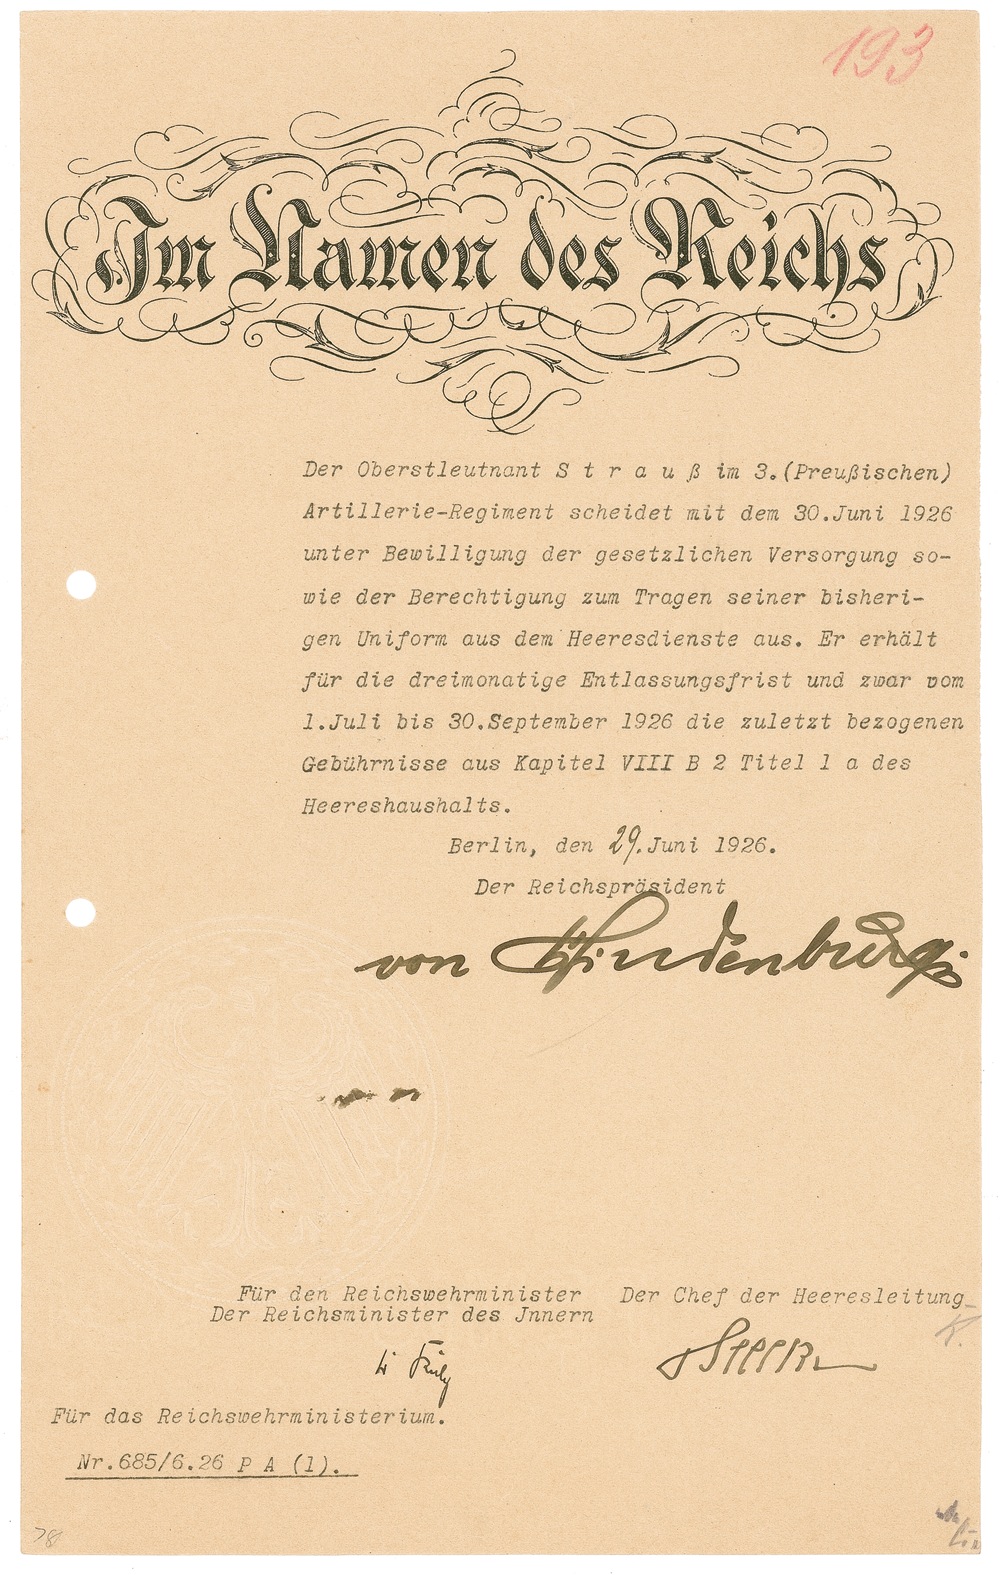 193
Im Namen des Reichs
Der Oberstleutnant S t r a u ß im 3.(Preußischen)
Artillerie-Regiment scheidet mit dem 30.Juni 1926
unter Bewilligung der gesetzlichen Versorgung so-
wie der Berechtigung zum Tragen seiner bisheri-
gen Uniform aus dem Heeresdienste aus. Er erhält
für die dreimonatige Entlassungsfrist und zwar vom
1.Juli bis 30.September 1926 die zuletzt bezogenen
Gebührnisse aus Kapitel VIII B 2 Titel 1 a des
Heereshaushalts.
Berlin, den 29.Juni 1926.
Der Reichspräsident
von Hindenburg.
Für den Reichswehrminister Der Chef der Heeresleitung
Der Reichsminister des Jnnern
Für das Reichswehrministerium.
Nr.685/6.26 P A (1).